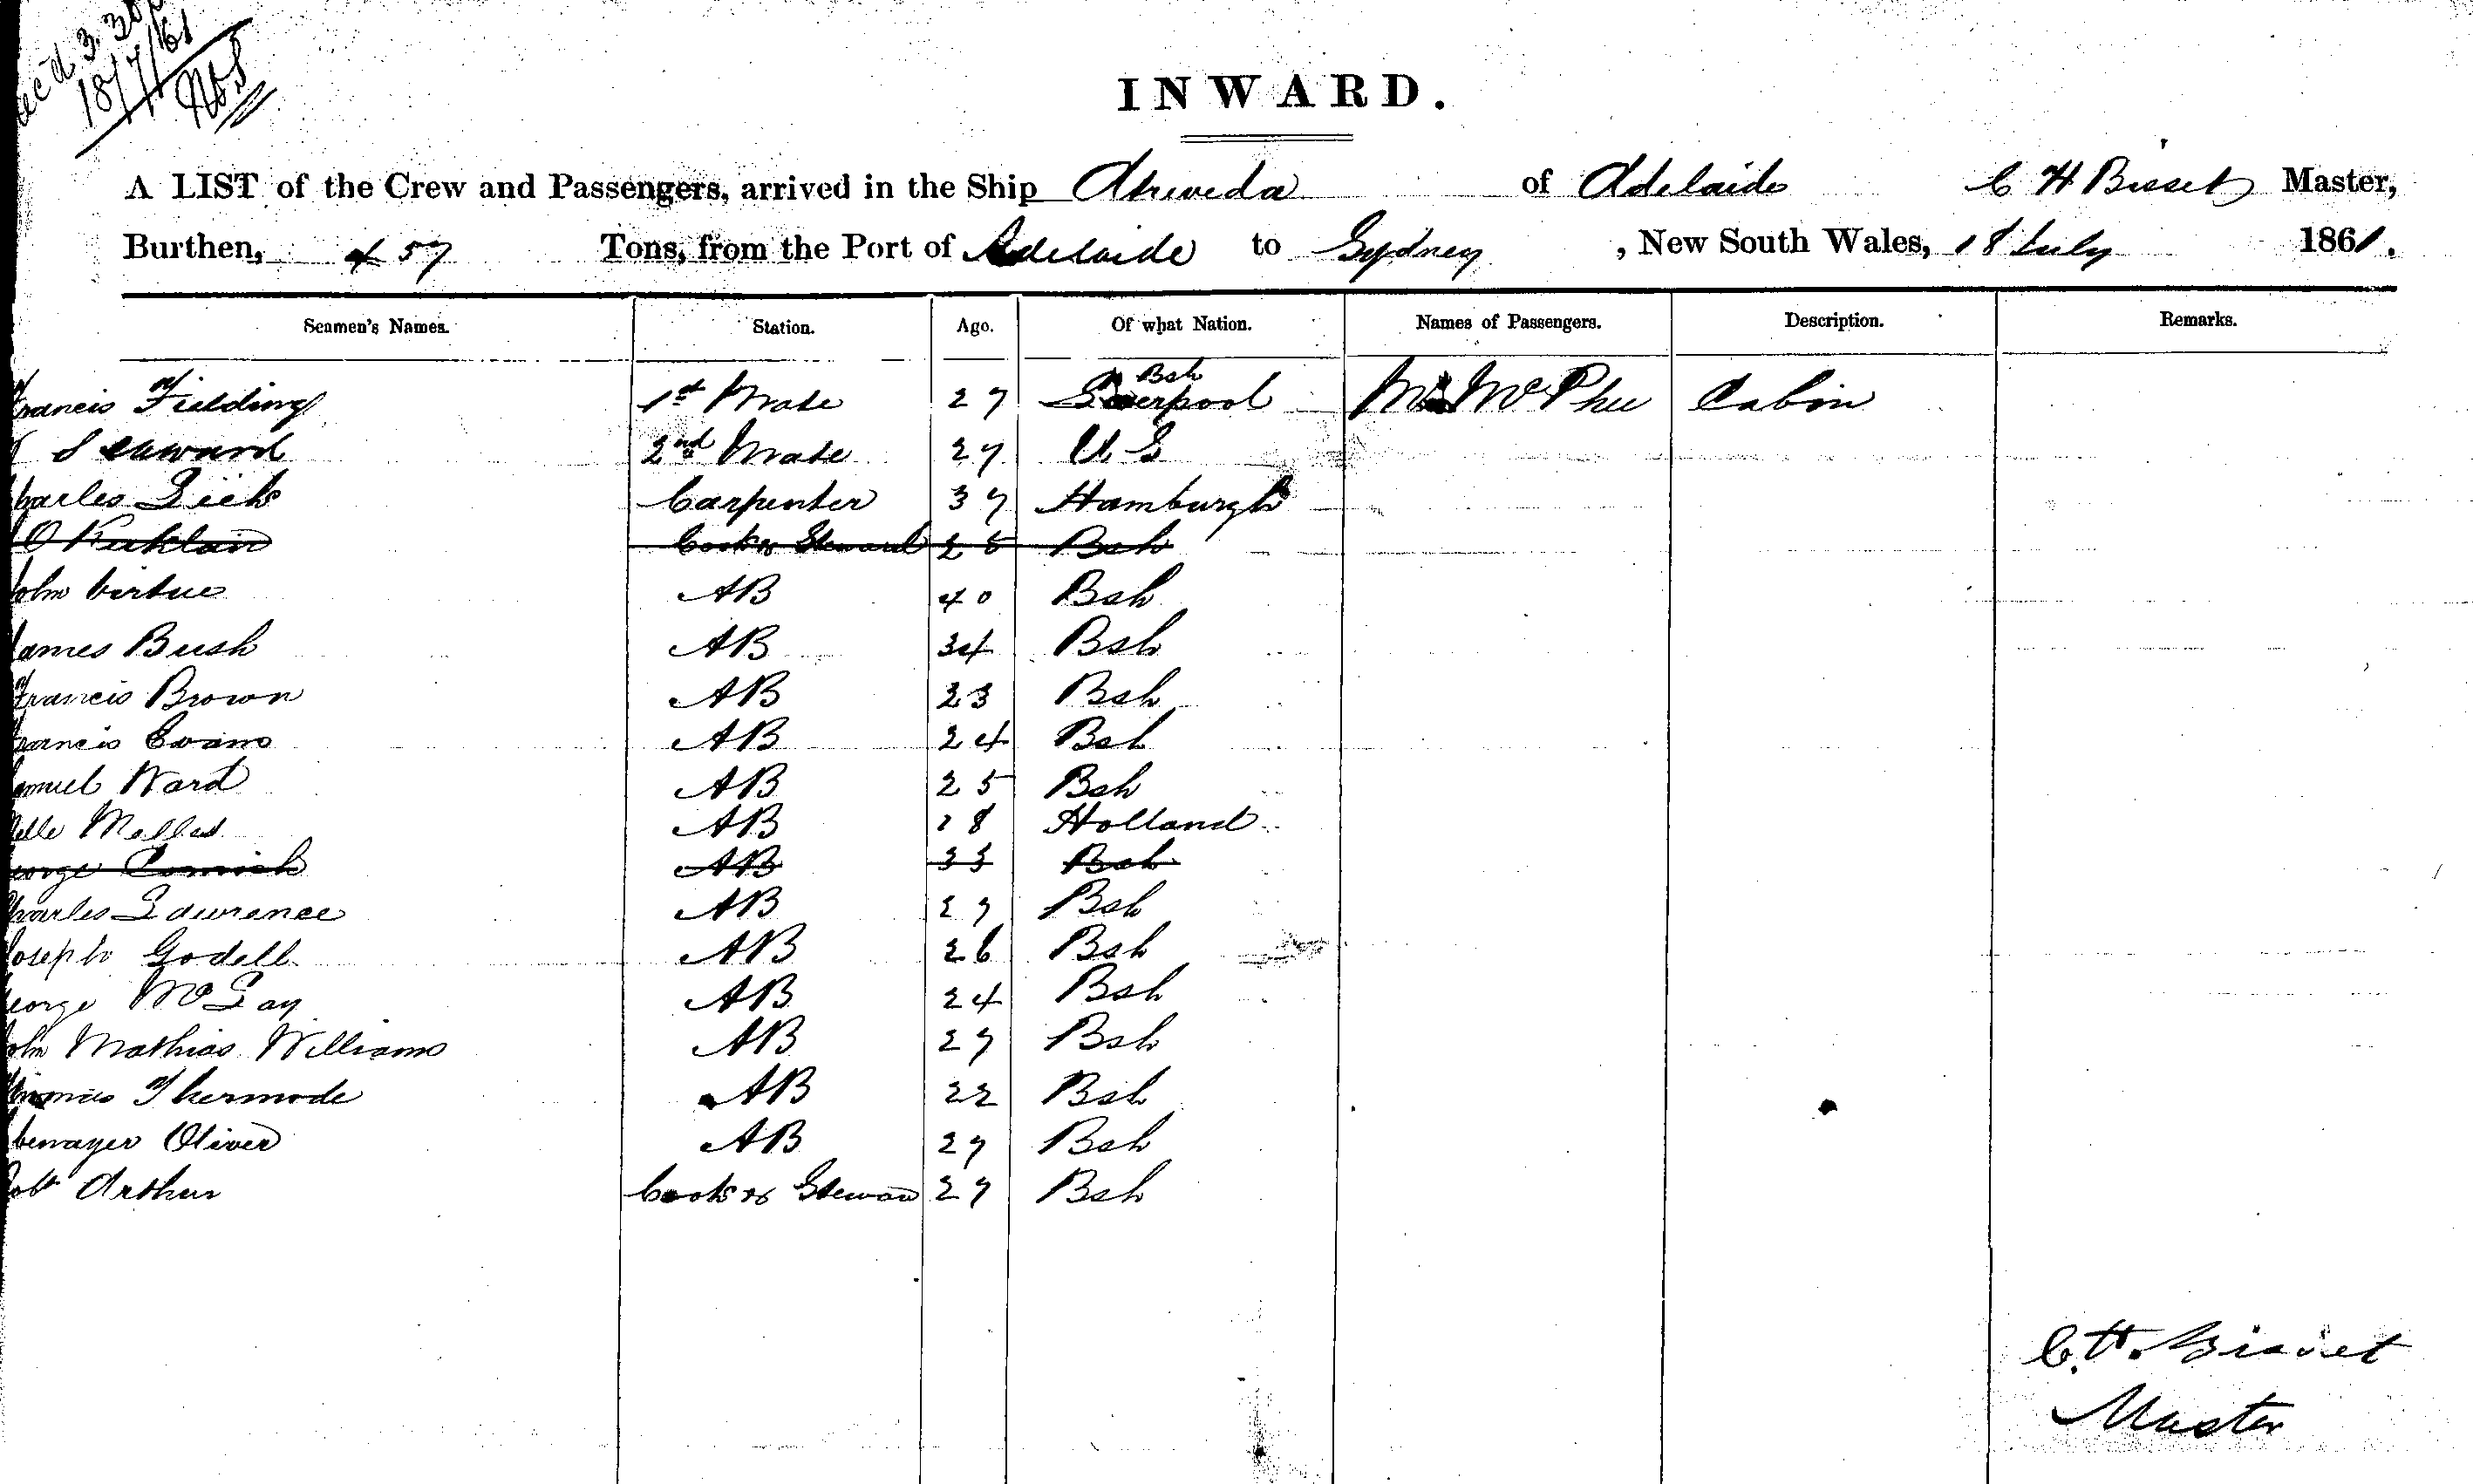 3.30
18/7/61
INWARD.
A LIST of the Crew and Passengers, arrived in the Ship Atrevida of Adelaide C H Bisset Master,
Burthen, 457 Tons, from the Port of Adelaide to Sydney, New South Wales, 18 July 1861.
Seamen's Names. Station. Age. Of what Nation. Names of Passengers. Description. Remarks.
Bsh
Francis Fielding 1st Mate 27 Liverpool McPhee Cabin
Seaward 2nd Mate 27 U S
Charles 37 Carpenter Hamburgh
O Kirklan Cook & Steward 25 Bsh
John Virtue AB 40 Bsh
James Bush AB 34 Bsh
Francis Brown AB 23 Bsh
Francis Evans AB 24 Bsh
Samuel Ward AB 25 Bsh
AB 18 Holland
George Cornish AB 33 Bsh
Charles Lawrence AB 27 Bsh
Joseph Godell AB 26 Bsh
George McLay AB 24 Bsh
John Mathias Williams AB 27 Bsh
Thomas AB 22 Bsh
Oliver AB 27 Bsh
Robt Arthur Cook & Stewar 27 Bsh
C. H. Bisset
Master